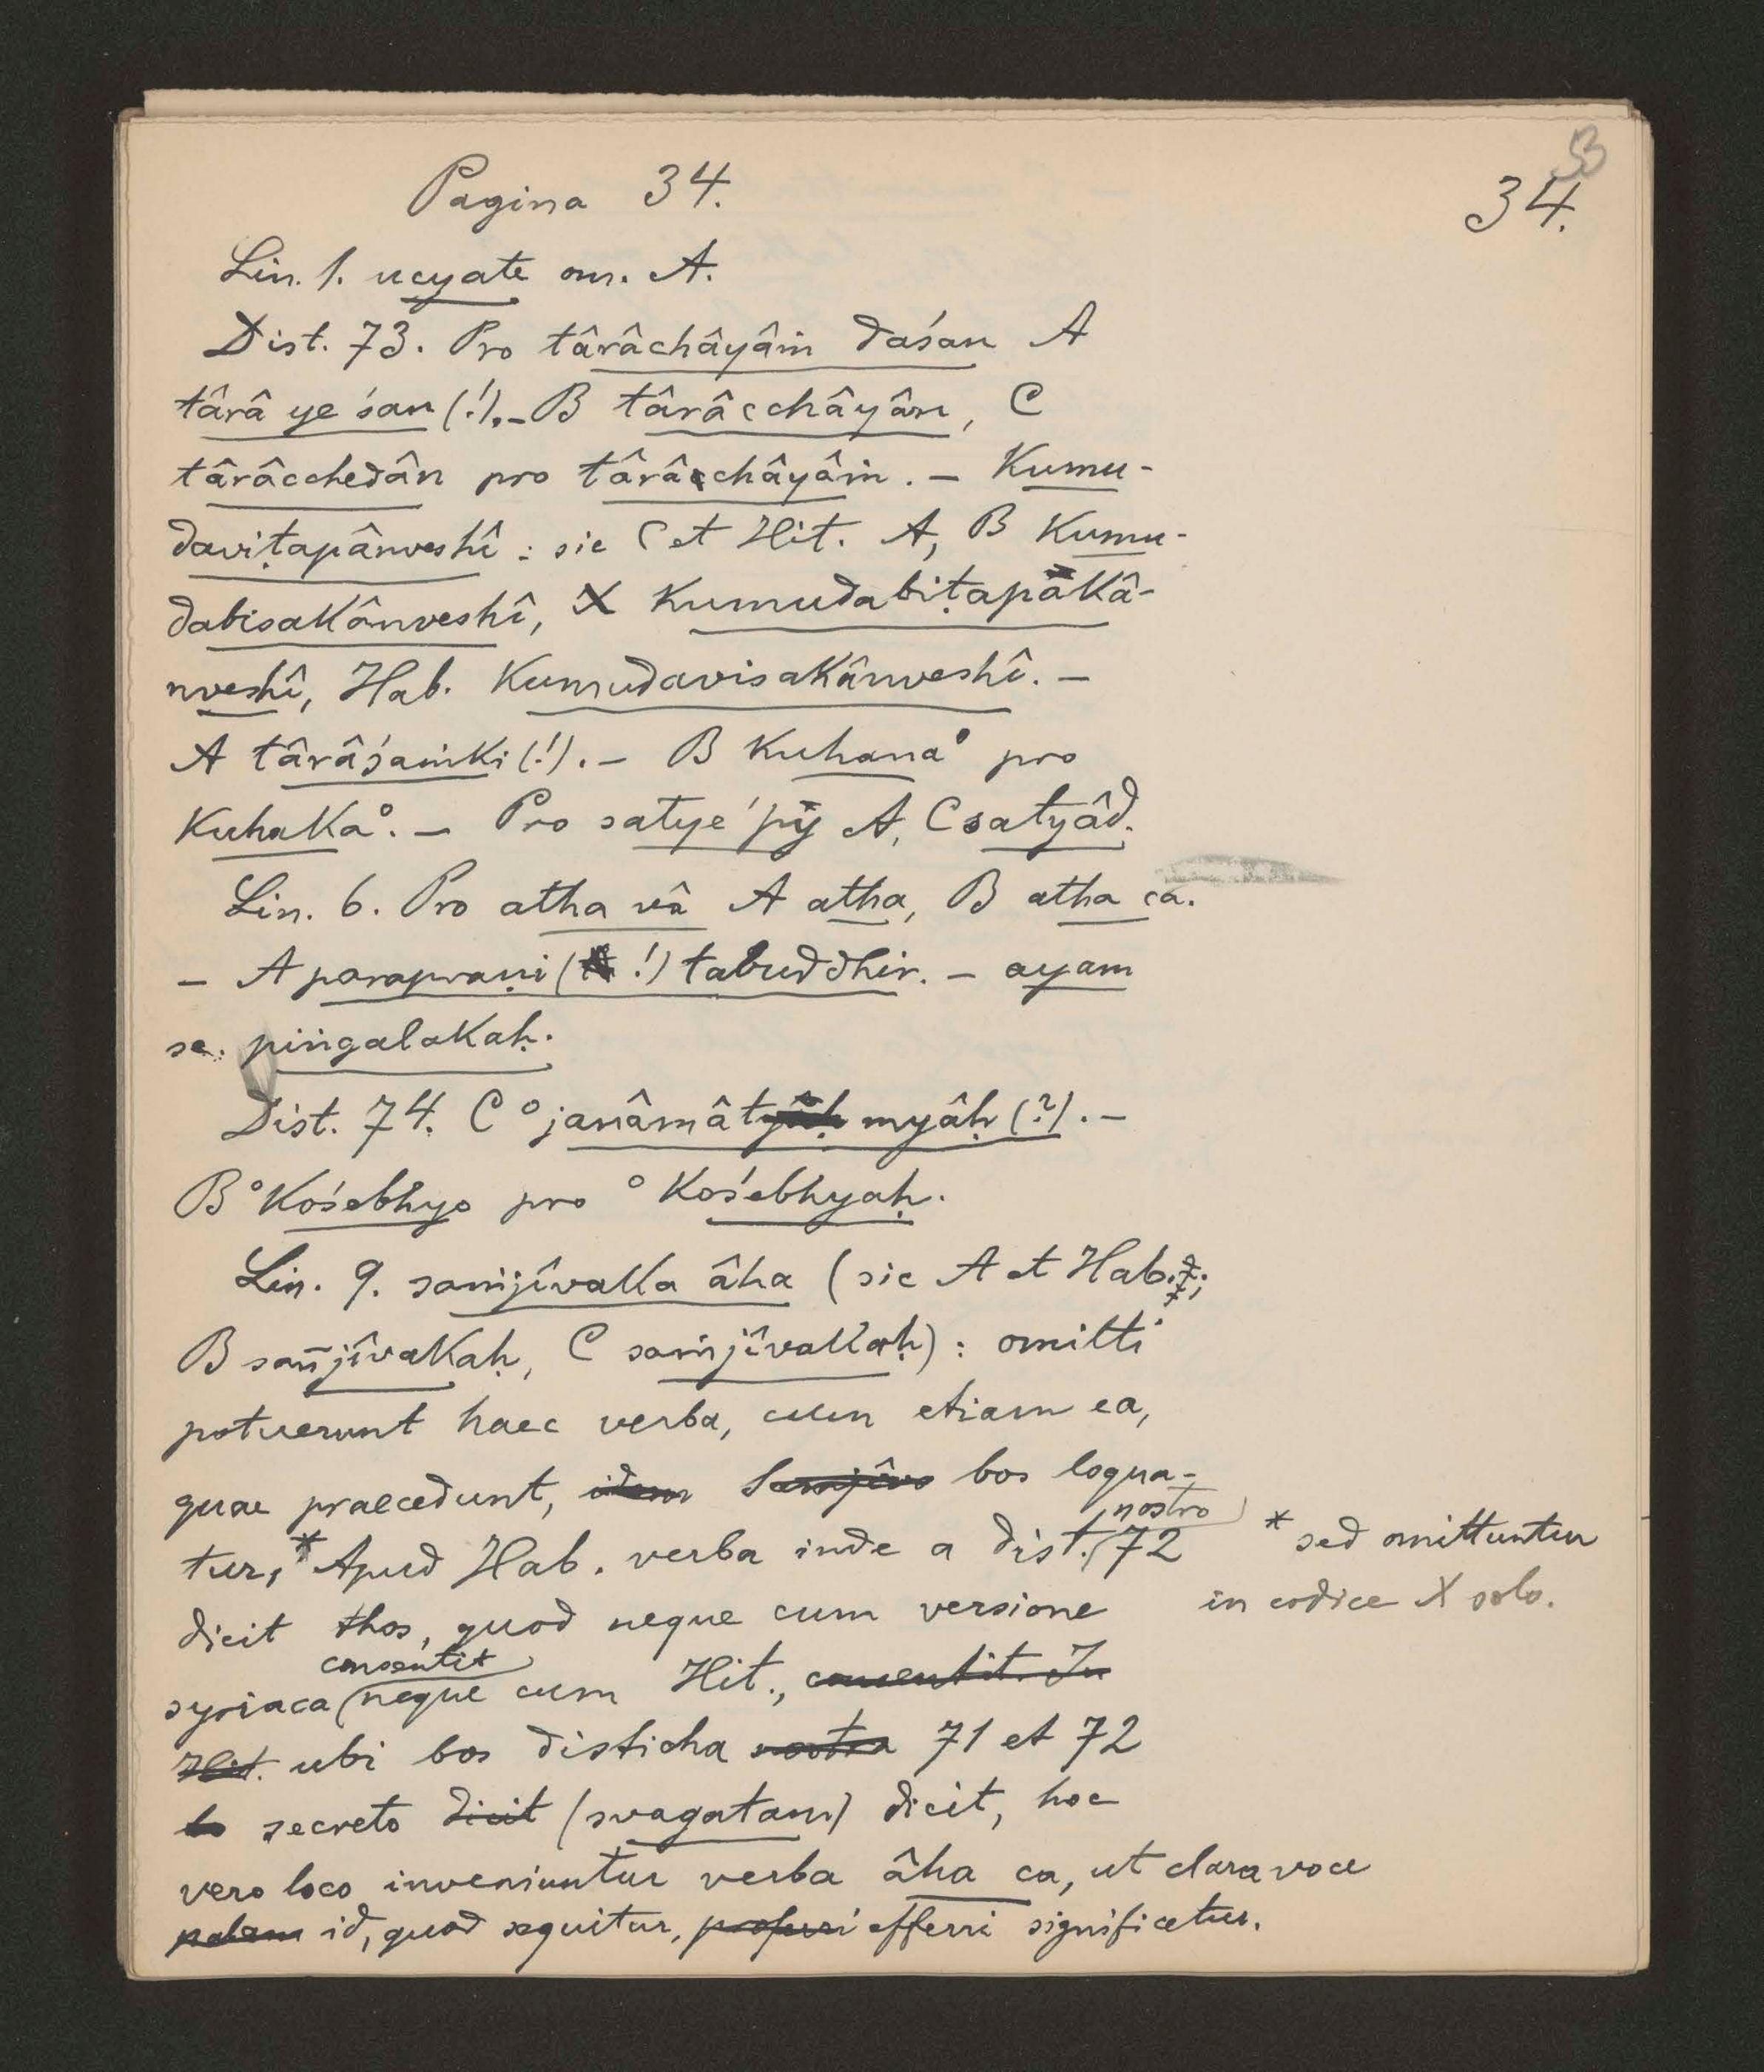 53
Pagina 34.
34.
Lin. 1. ucyate om. A.
Dist. 73. Pro târâchâyâṁ daśan A
târâ ye śan (!). – B târâcchâyân, C
târâcchedân pro târâchâyâṁ. – Kumu-
daviṭapânveshî: sic C et Hit. A, B Kumu-
dabisakânveshî, X Kumudabiṭapakâ-
nveshî, Hab. Kumudavisakânveshî. –
A târâśaṁki (!). – B Kuhana° pro
Kuhaka°. – Pro satye 'py A, C satyâd.
Lin. 6. Pro atha vâ A atha, B atha ca.
– A parapraṇi (!) tabuddhir. – ayam
sc. piṅgalakaḥ.
Dist. 74. C °janâmâtmyâḥ (?). –
B °kośebhyo pro °kośebhyaḥ.
Lin. 9. saṁjîvaka âha (sic A et Hab.;
B sañjîvakaḥ, C saṁjîvakaḥ): omitti
potuerunt haec verba, cum etiam ea,
quae praecedunt, idem Samjîvo bos loqua-
nostro
tur,* Apud Hab. verba inde a dist. 72
* sed omittuntur
in codice X solo.
dicit thos, quod neque cum versione
consentit
syriaca neque cum Hit., consentit. In
Hit. ubi bos disticha nostra 71 et 72
bo secreto dicit (svagatam) dicit, hoc
vero loco inveniuntur verba âha ca, ut clara voce
palam id, quod sequitur, proferri efferri significetur.